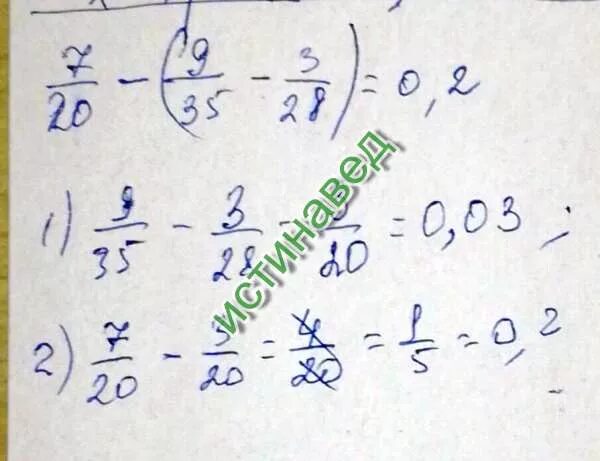 7/20 - (9/35 - 3/28) = 0,2
1) 9/35 - 3/28 = 3/20 = 0,03;
2) 7/20 - 3/20 = 4/20 = 1/5 = 0,2
истинавед